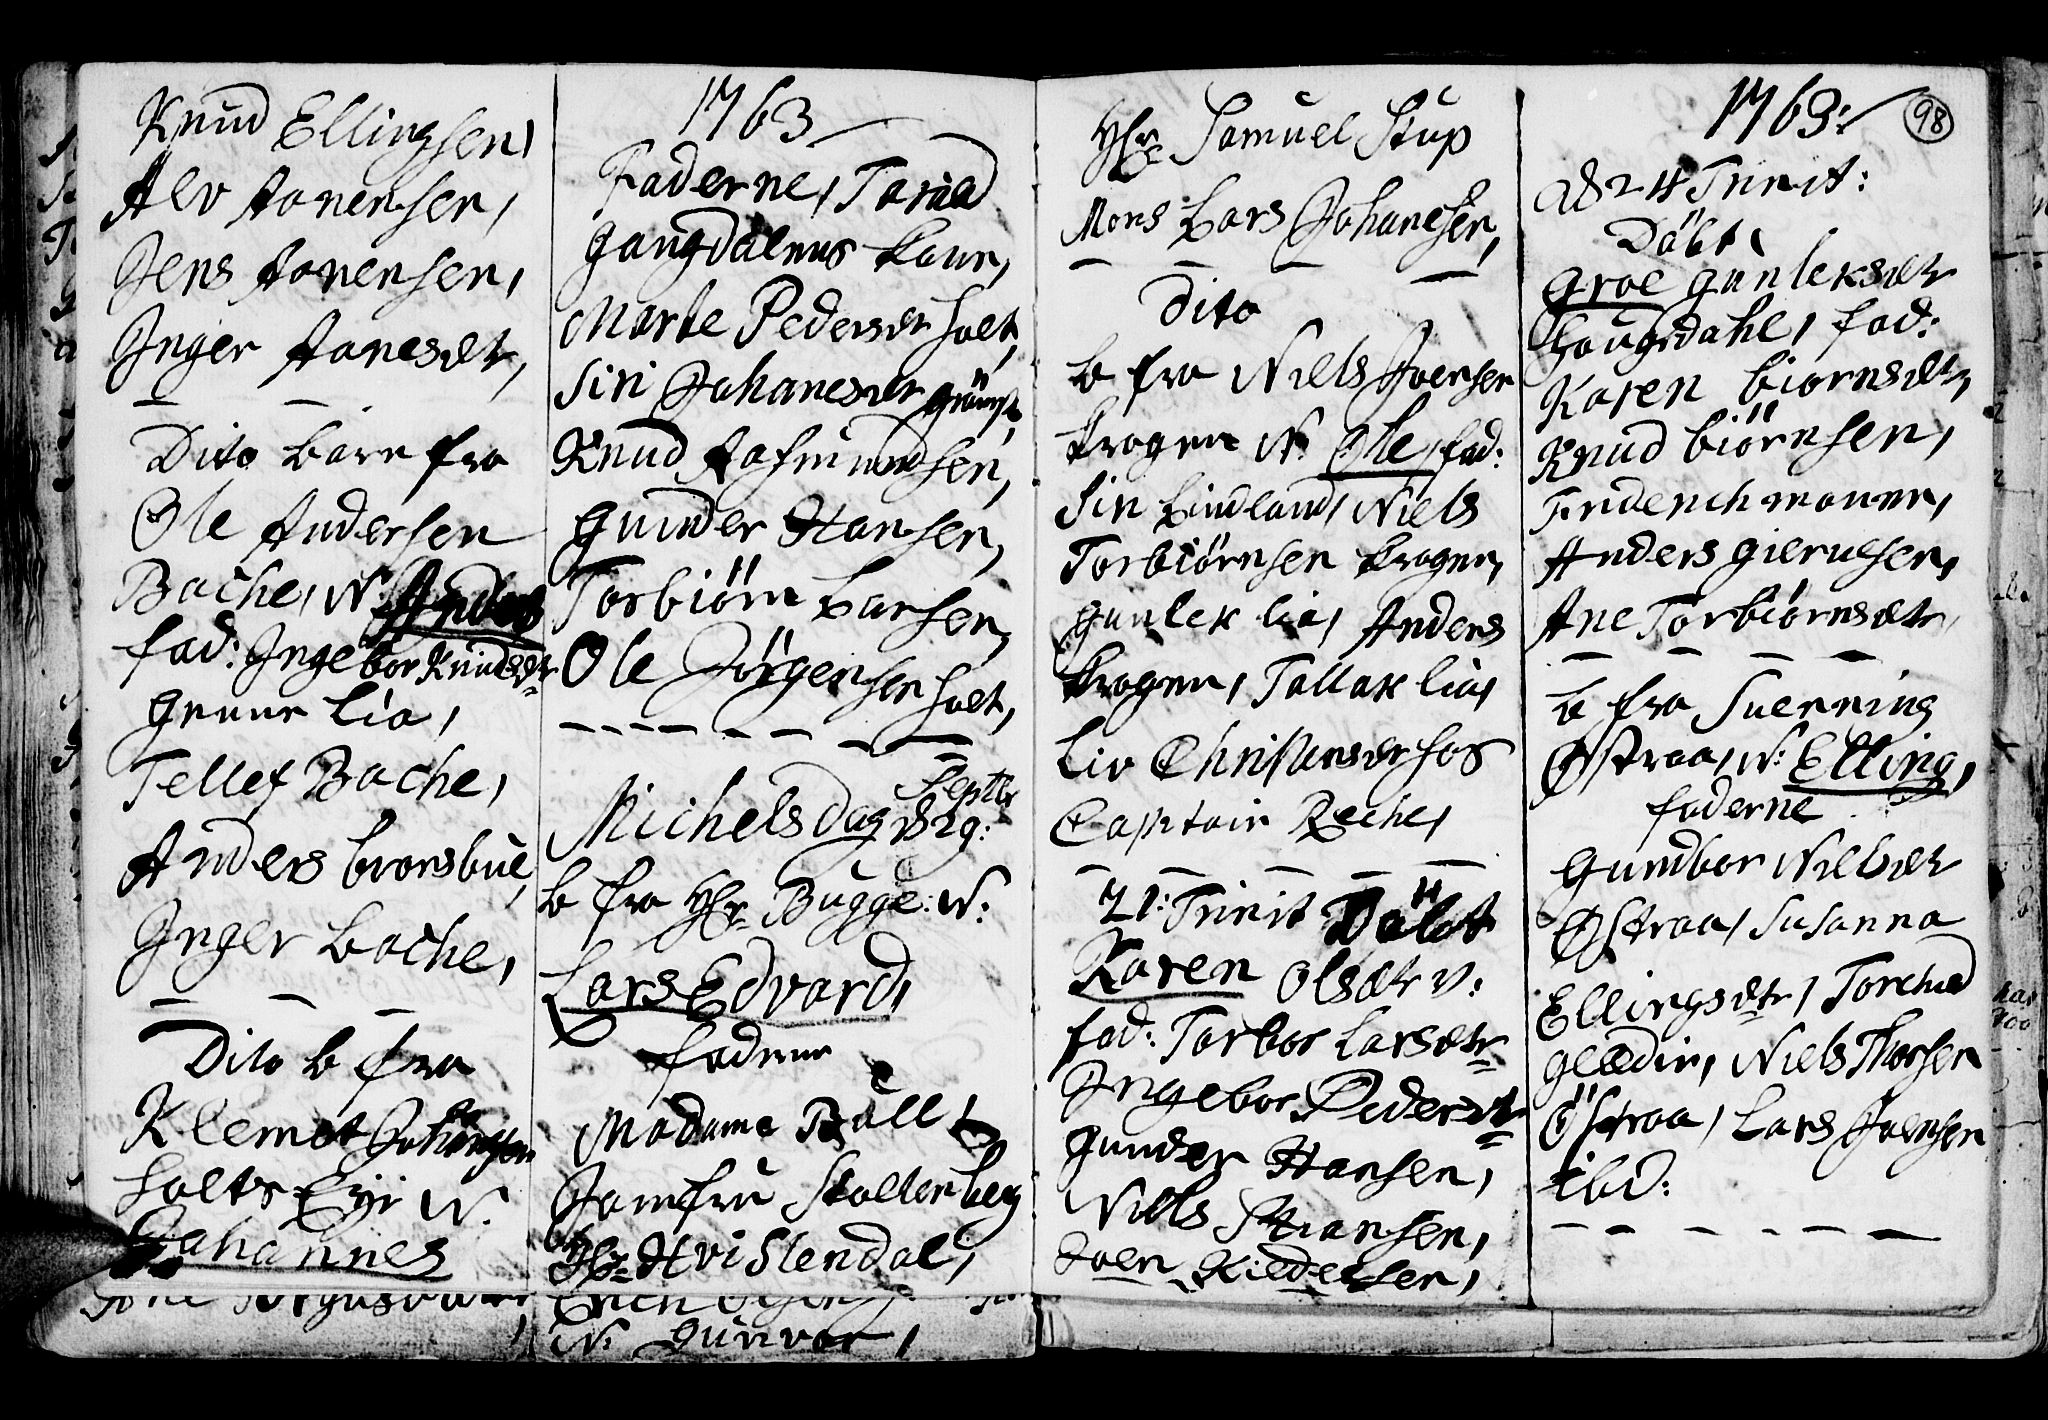 Knud Ellingsen,
Alv Aanensen,
Jens Aanensen,
Inger Aanesdtr,
Dito barn fra
Ole Andersen
Bache, N: Anders
fad: Ingebor Knudsdtr
Grune Lia,
Tellef Bache,
Anders brorsbue,
Inger Bache,
Dito b fra
Klemet Johansen
Holts Eje N.
Johannes
1763
Faderne, Tarald
Haugdalens kaane,
Marte Pedersdr Holt,
Siri Johanesdr
Knud Aasmundsen,
Gunder Hansen,
Torbiörn Larsen,
Ole Jörgensen Holt,
Septbr
Michels dag d 29:
b fra Hr Bugge: N:
Lars Edvard,
faderne
Madame Bull
Jomfru Stoltenberg
Hr Hvistendal,
N: Gunvor,
Hr Samuel Stup
Mons Lars Johanesen,
Dito
b fra Niels Joensen
Krogen N: Ole, fad:
Siri Lindland, Niels
Torbiörnsen Krogen,
Gunlek Lia, Anders
Krogen, Tallak Lia,
Liv Christensdr hos
Captain Reche,
21: Trinit Döbt
Karen Olsdtr v:
fad: Torbor Larsdtr
Ingebor Pedersdtr
Gunder Hansen,
Niels Stiansen,
Joen Kiedelsen,
1763:
98
d 24 Trinit:
Döbt
Groe Gunleksdtr
Hougdahl, fad:
Karen biornsdtr,
Knud biörnsen,
Friderich manner,
Anders Gierulsen,
Ane Torbiörnsdtr,
b fra Suenning
Østraa, N: Elling,
faderne
Gundbor Nielsdtr
Østraa, Susanna
Ellingsdtr, Torchild
Gliedie, Niels Thorsen
Östraa, Lars Joensen
ibd: